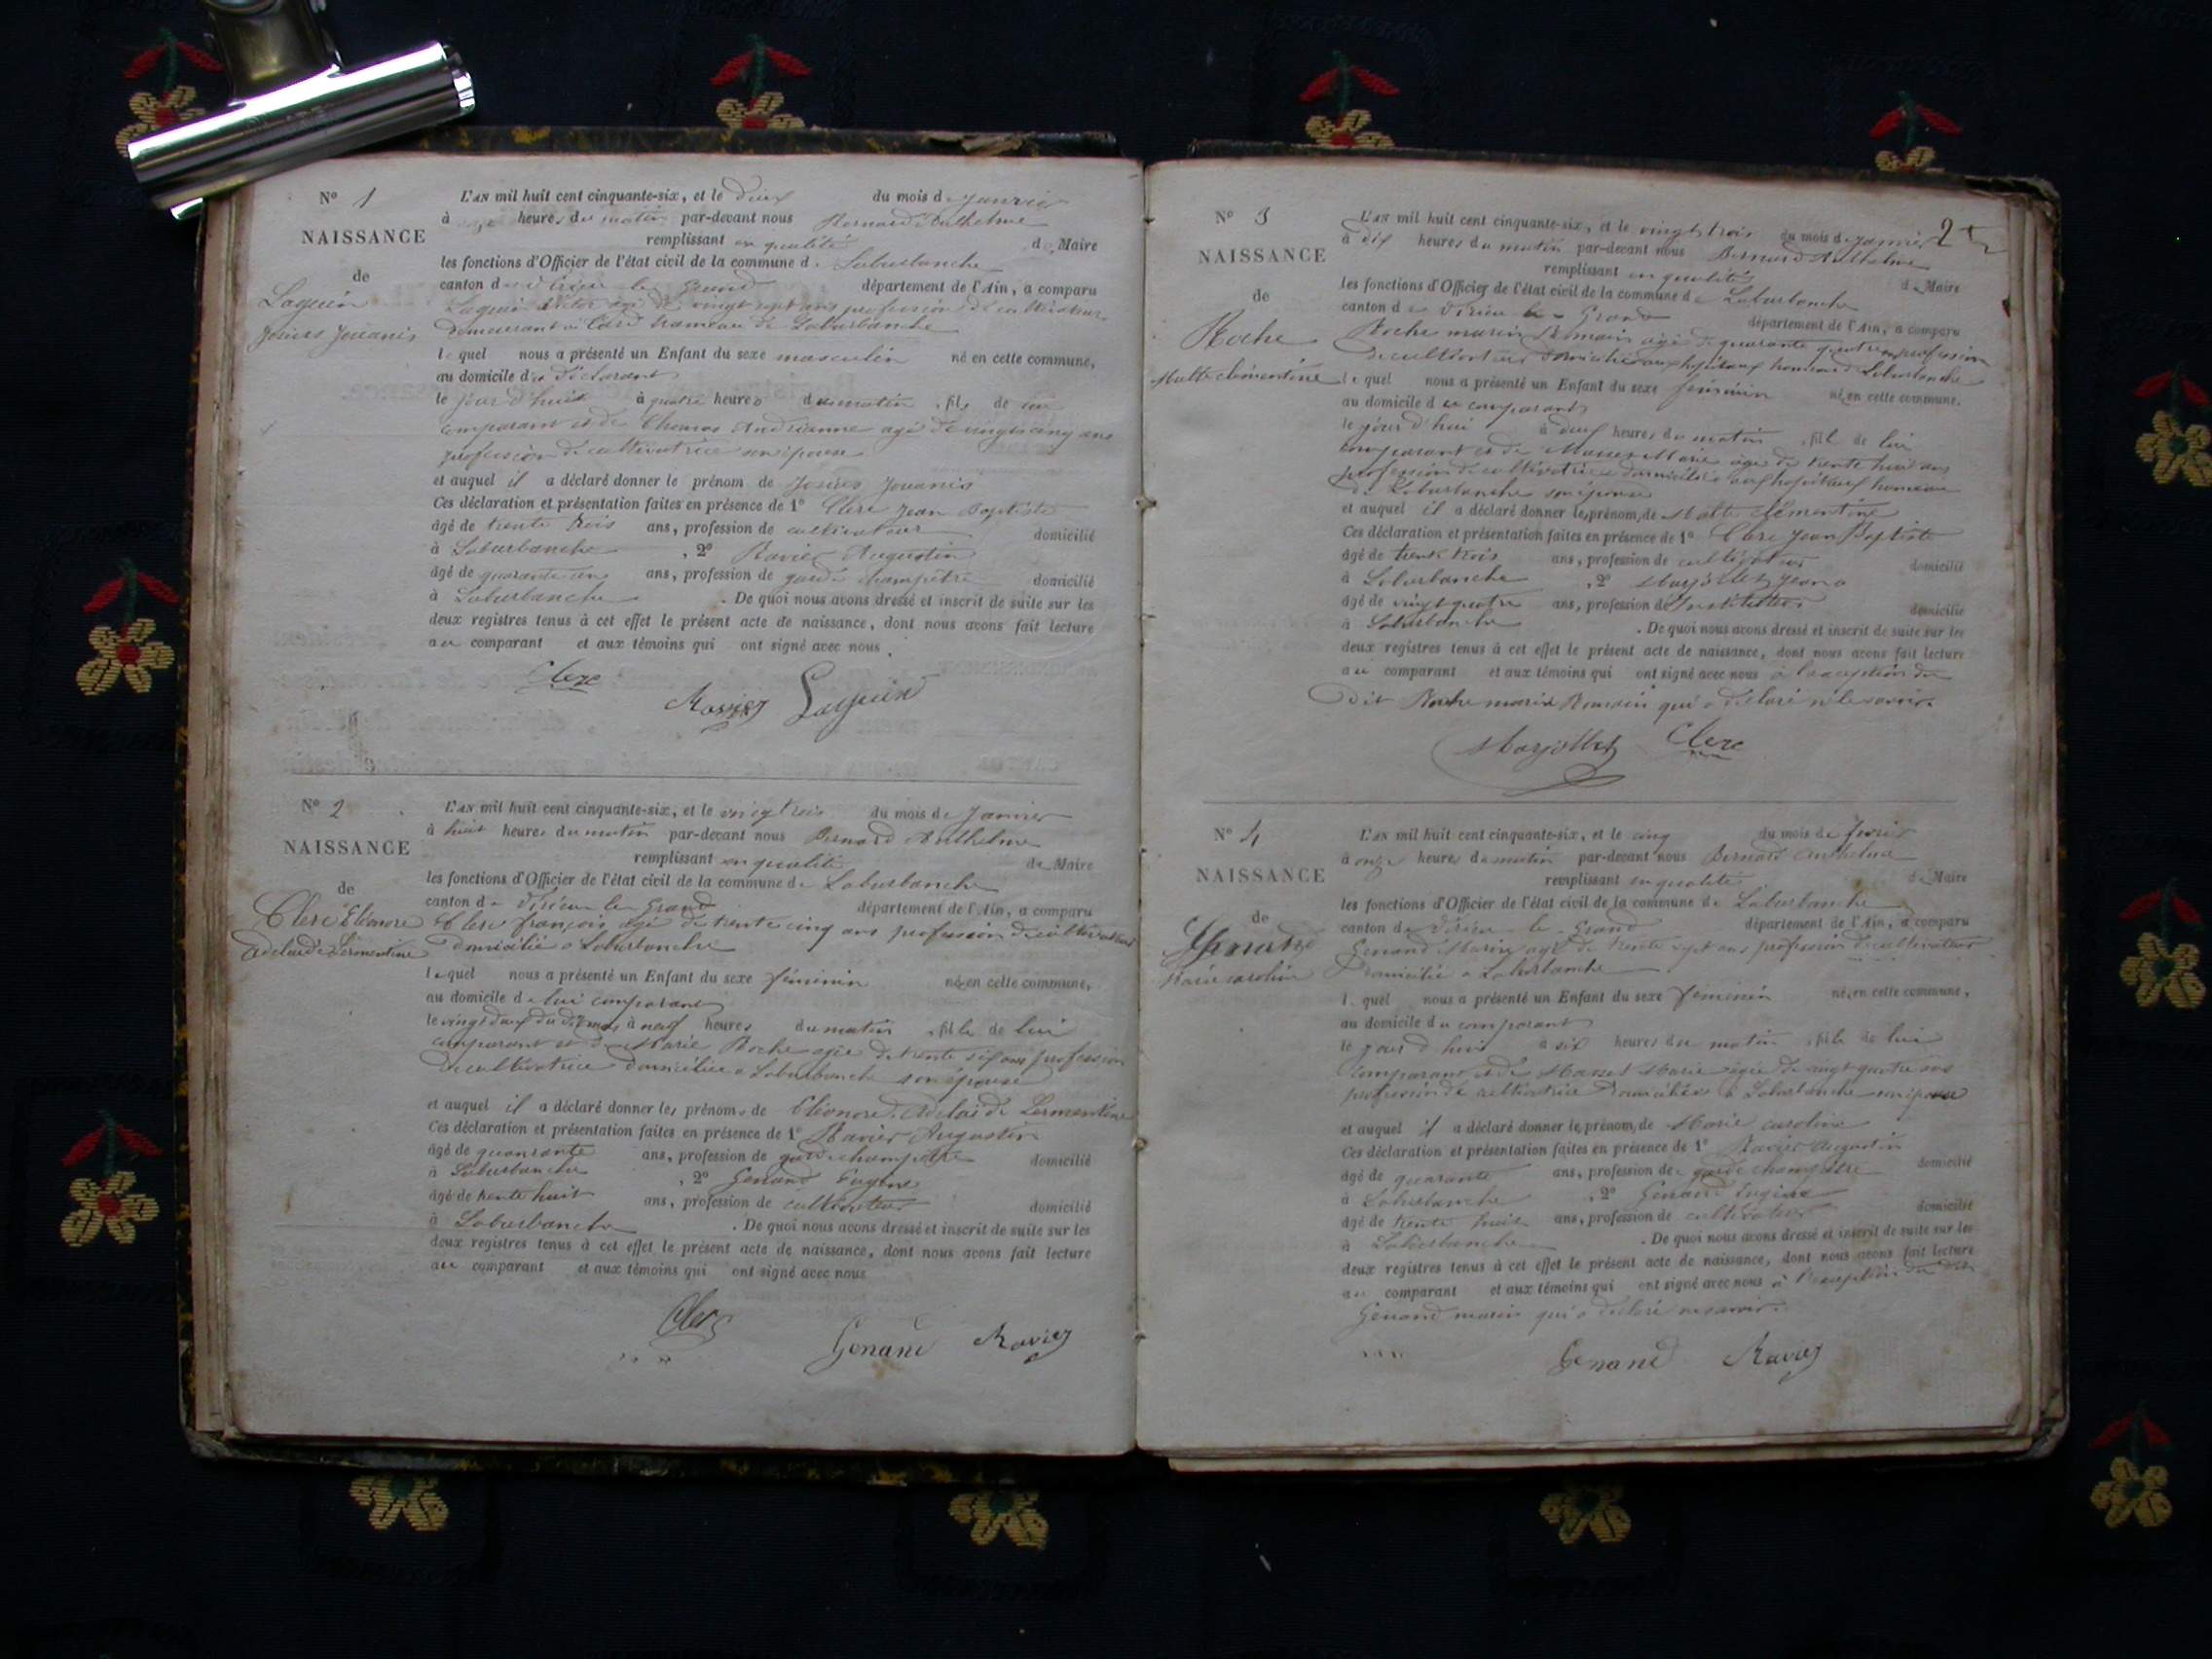 Nº 1
NAISSANCE
de
Laguin
L'AN mil huit cent cinquante-six, et le deux du mois de janvier
à onze heures du matin par-devant nous Bernard Anthelme
remplissant en qualité de Maire
les fonctions d'Officier de l'état civil de la commune de Laburbanche
canton de Virieu le Grand département de l'Ain, a comparu
Laguin Victor agé de vingt sept ans profession de cultivateur
demeurant à hameau de Laburbanche
lequel nous a présenté un Enfant du sexe masculin né en cette commune,
au domicile du déclarant
le jour d'hui à quatre heures du matin, fils de lui
comparant et de Andrianne agé de vingt cinq ans
profession de cultivatrice son épouse
et auquel il a déclaré donner le prénom de
Ces déclaration et présentation faites en présence de 1º Clerc Jean Baptiste
âgé de trente trois ans, profession de cultivateur domicilié
à Laburbanche, 2º Ravier Augustin
âgé de quarante ans, profession de garde champêtre domicilié
à Laburbanche. De quoi nous avons dressé et inscrit de suite sur les
deux registres tenus à cet effet le présent acte de naissance, dont nous avons fait lecture
au comparant et aux témoins qui ont signé avec nous.
Clerc
Ravier Laguin
Nº 2
NAISSANCE
de
Clerc Eléonore
Adelaide Lermentine
L'AN mil huit cent cinquante-six, et le vingt trois du mois de Janvier
à huit heures du matin par-devant nous Bernard Anthelme
remplissant en qualité de Maire
les fonctions d'Officier de l'état civil de la commune de Laburbanche
canton de Virieu le Grand département de l'Ain, a comparu
Clerc françois agé de trente cinq ans profession de cultivateur
domicilié a Laburbanche
lequel nous a présenté un Enfant du sexe féminin née en cette commune,
au domicile de lui comparant
le vingt deux du dit mois à neuf heures du matin, fille de lui
comparant et de Marie Roche agée de trente six ans profession
de cultivatrice domiciliée a Laburbanche son épouse
et auquel il a déclaré donner les prénoms de Eléonore Adelaide Lermentine
Ces déclaration et présentation faites en présence de 1º Ravier Augustin
âgé de quarante ans, profession de garde champêtre domicilié
à Laburbanche, 2º Genand Eugène
âgé de trente huit ans, profession de cultivateur domicilié
à Laburbanche. De quoi nous avons dressé et inscrit de suite sur les
deux registres tenus à cet effet le présent acte de naissance, dont nous avons fait lecture
au comparant et aux témoins qui ont signé avec nous
Clerc
Genand Ravier
2
Nº 3
NAISSANCE
de
Roche
clémentine
L'AN mil huit cent cinquante-six, et le vingt trois du mois de Janvier
à dix heures du matin par-devant nous Bernard Anthelme
remplissant en qualité de Maire
les fonctions d'Officier de l'état civil de la commune de Laburbanche
canton de Virieu le Grand département de l'Ain, a comparu
Roche marin Romain agé de quarante quatre profession
de cultivateur domicilié aux hopitaux hameau de Laburbanche
lequel nous a présenté un Enfant du sexe féminin née en cette commune,
au domicile du comparant
le jour d'hui à deux heures du matin, fille de lui
comparant et de Marie agé de trente huit ans
profession de cultivatrice domiciliée aux hopitaux hameau
de Laburbanche son épouse
et auquel il a déclaré donner les prénom, de clémentine
Ces déclaration et présentation faites en présence de 1º Clerc Jean Baptiste
âgé de trente trois ans, profession de cultivateur domicilié
à Laburbanche, 2º Marjollet Jean
âgé de vingt quatre ans, profession de Instituteur domicilié
à Laburbanche. De quoi nous avons dressé et inscrit de suite sur les
deux registres tenus à cet effet le présent acte de naissance, dont nous avons fait lecture
au comparant et aux témoins qui ont signé avec nous à l'exception du
Dit Roche marin Romain qui a déclaré ne le savoir.
Marjollet Clerc
Nº 4
NAISSANCE
de
Marie caroline
L'AN mil huit cent cinquante-six, et le cinq du mois de fevrier
à onze heures du matin par-devant nous Bernard anthelme
remplissant en qualité de Maire
les fonctions d'Officier de l'état civil de la commune de Laburbanche
canton de Virieu le Grand département de l'Ain, a comparu
Genand Marin agé de trente sept ans profession de cultivateur
Domicilié a Laburbanche
lequel nous a présenté un Enfant du sexe féminin née en cette commune,
au domicile du comparant
le jour d'hui à six heures du matin, fille de lui
comparant et de Marie agée de vingt quatre ans
profession de cultivatrice Domiciliée a Laburbanche son épouse
et auquel il a déclaré donner les prénom, de Marie caroline
Ces déclaration et présentation faites en présence de 1º Ravier Augustin
âgé de quarante ans, profession de garde champêtre domicilié
à Laburbanche, 2º Genand Eugène
âgé de trente huit ans, profession de cultivateur domicilié
à Laburbanche. De quoi nous avons dressé et inscrit de suite sur les
deux registres tenus à cet effet le présent acte de naissance, dont nous avons fait lecture
au comparant et aux témoins qui ont signé avec nous à l'exception du dit
Genand marin qui a déclaré ne savoir.
Genand Ravier